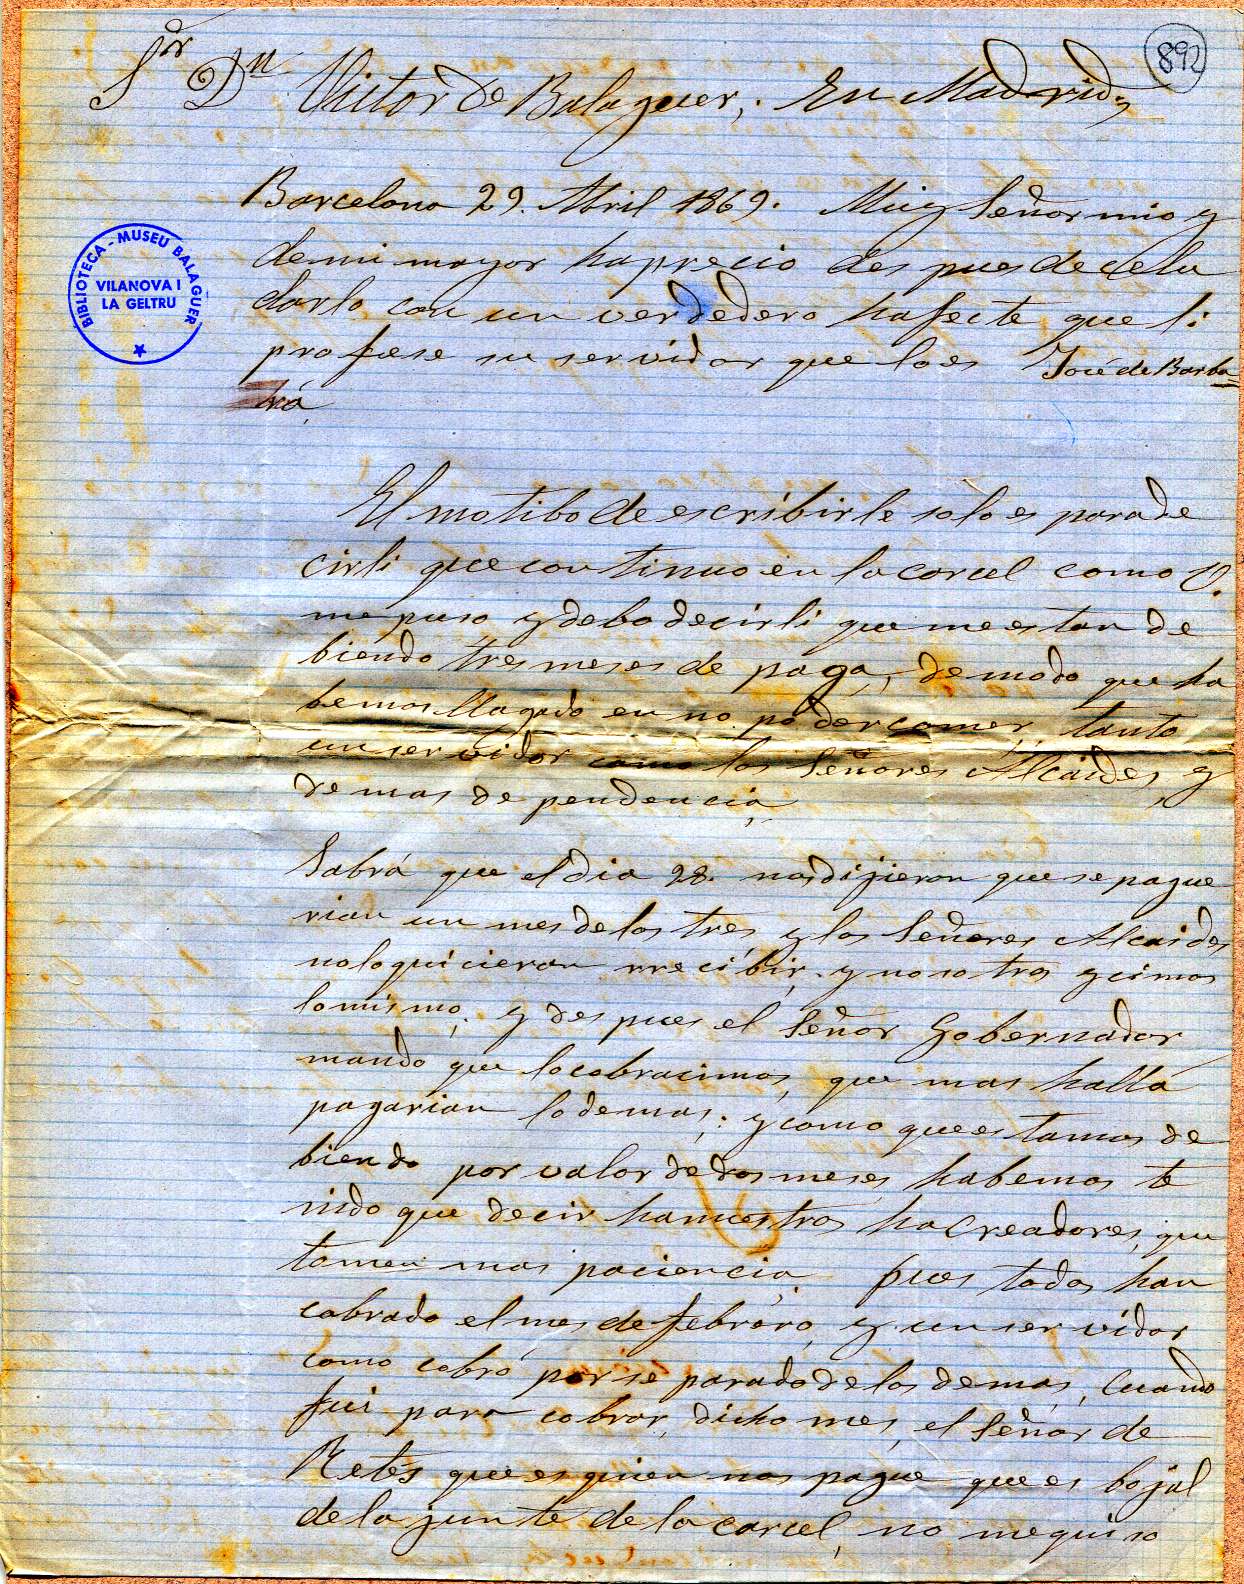 892
Sor Dn Victor de Balaguer, En Madrid,
Barcelona 29. Abril 1869. Muy Señor mio y
BIBLIOTECA - MUSEU BALAGUER
VILANOVA I
LA GELTRU
demi mayor haprecio des pues de
darlo con un verdedero hafecte que li
profese su servidor que loes José de Barba
rá
El motibo de escribirle solo es parade
cirli que continuo en la carcel como V.
me puso y debo decirli que me estan de
biendo tres meses de paga, demodo que ha
bemos llagado en no podercomer, tanto
un servidor como los Señores Alcaides, y
demas de pendencia
Sabrá que el dia 28. nosdijieron que se pague
rian un mes delos tres, y los Señores Alcaides
noloquicieron rrecibir, y nosotros ycimos
lomismo, y des pues el Señor Gobernador
mando que locobracimos, que mas hallá
pagarian lodemas; y como que estamos de
biendo por valor de dos meses, habemos te
nido que decir hanuestros hacreadores, que
tomen mas paciencia. pues todos han
cobrado el mes de febrero, y un servidor
como cobró por se parado de los demas, Cuando
fui para cobrar, dicho mes, el Señor de
Retes que es quien nos pague que es bojal
de la junte de la carcel, no me quiso